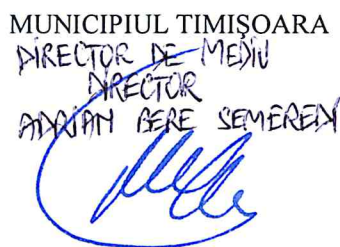 MUNICIPIUL TIMIȘOARA
DIRECTOR DE MEDIU
DIRECTOR
ADRIAN BERE SEMEREDI